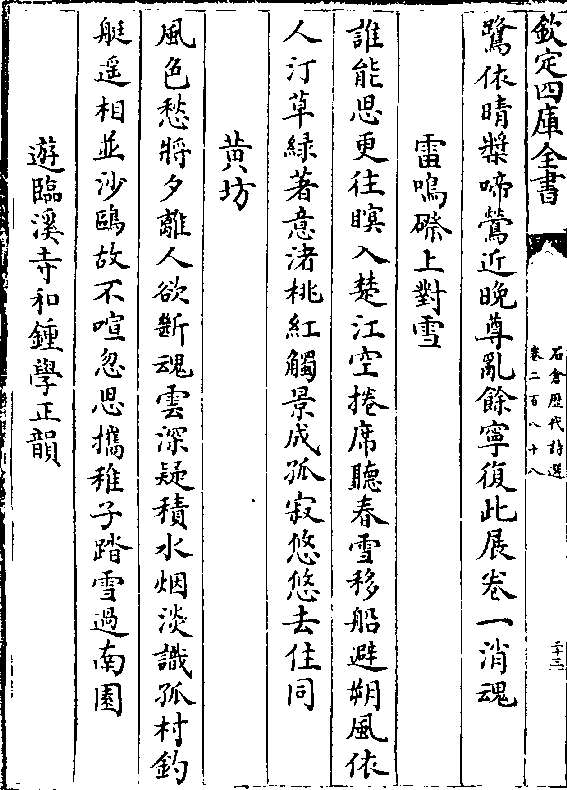 欽定四庫全書
石倉歴代詩選
卷二百八十八
二十三
鷺依晴槳啼鶯近晚尊亂餘寧復此展卷一消魂
雷鳴磜上對雪
誰能思更往暝入楚江空捲席聽春雪移船避朔風依
人汀草緑著意渚桃紅觸景成孤寂悠悠去住同
黄坊
風色愁將夕離人欲斷魂雲深疑積水烟淡識孤村釣
艇遥相並沙鷗故不喧忽思攜稚子踏雪過南園
遊臨溪寺和鍾學正韻